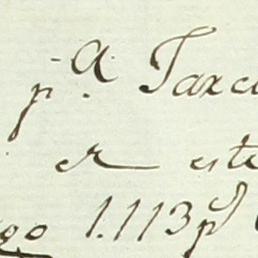 pª Taxc
er este
go 1.113 p^s